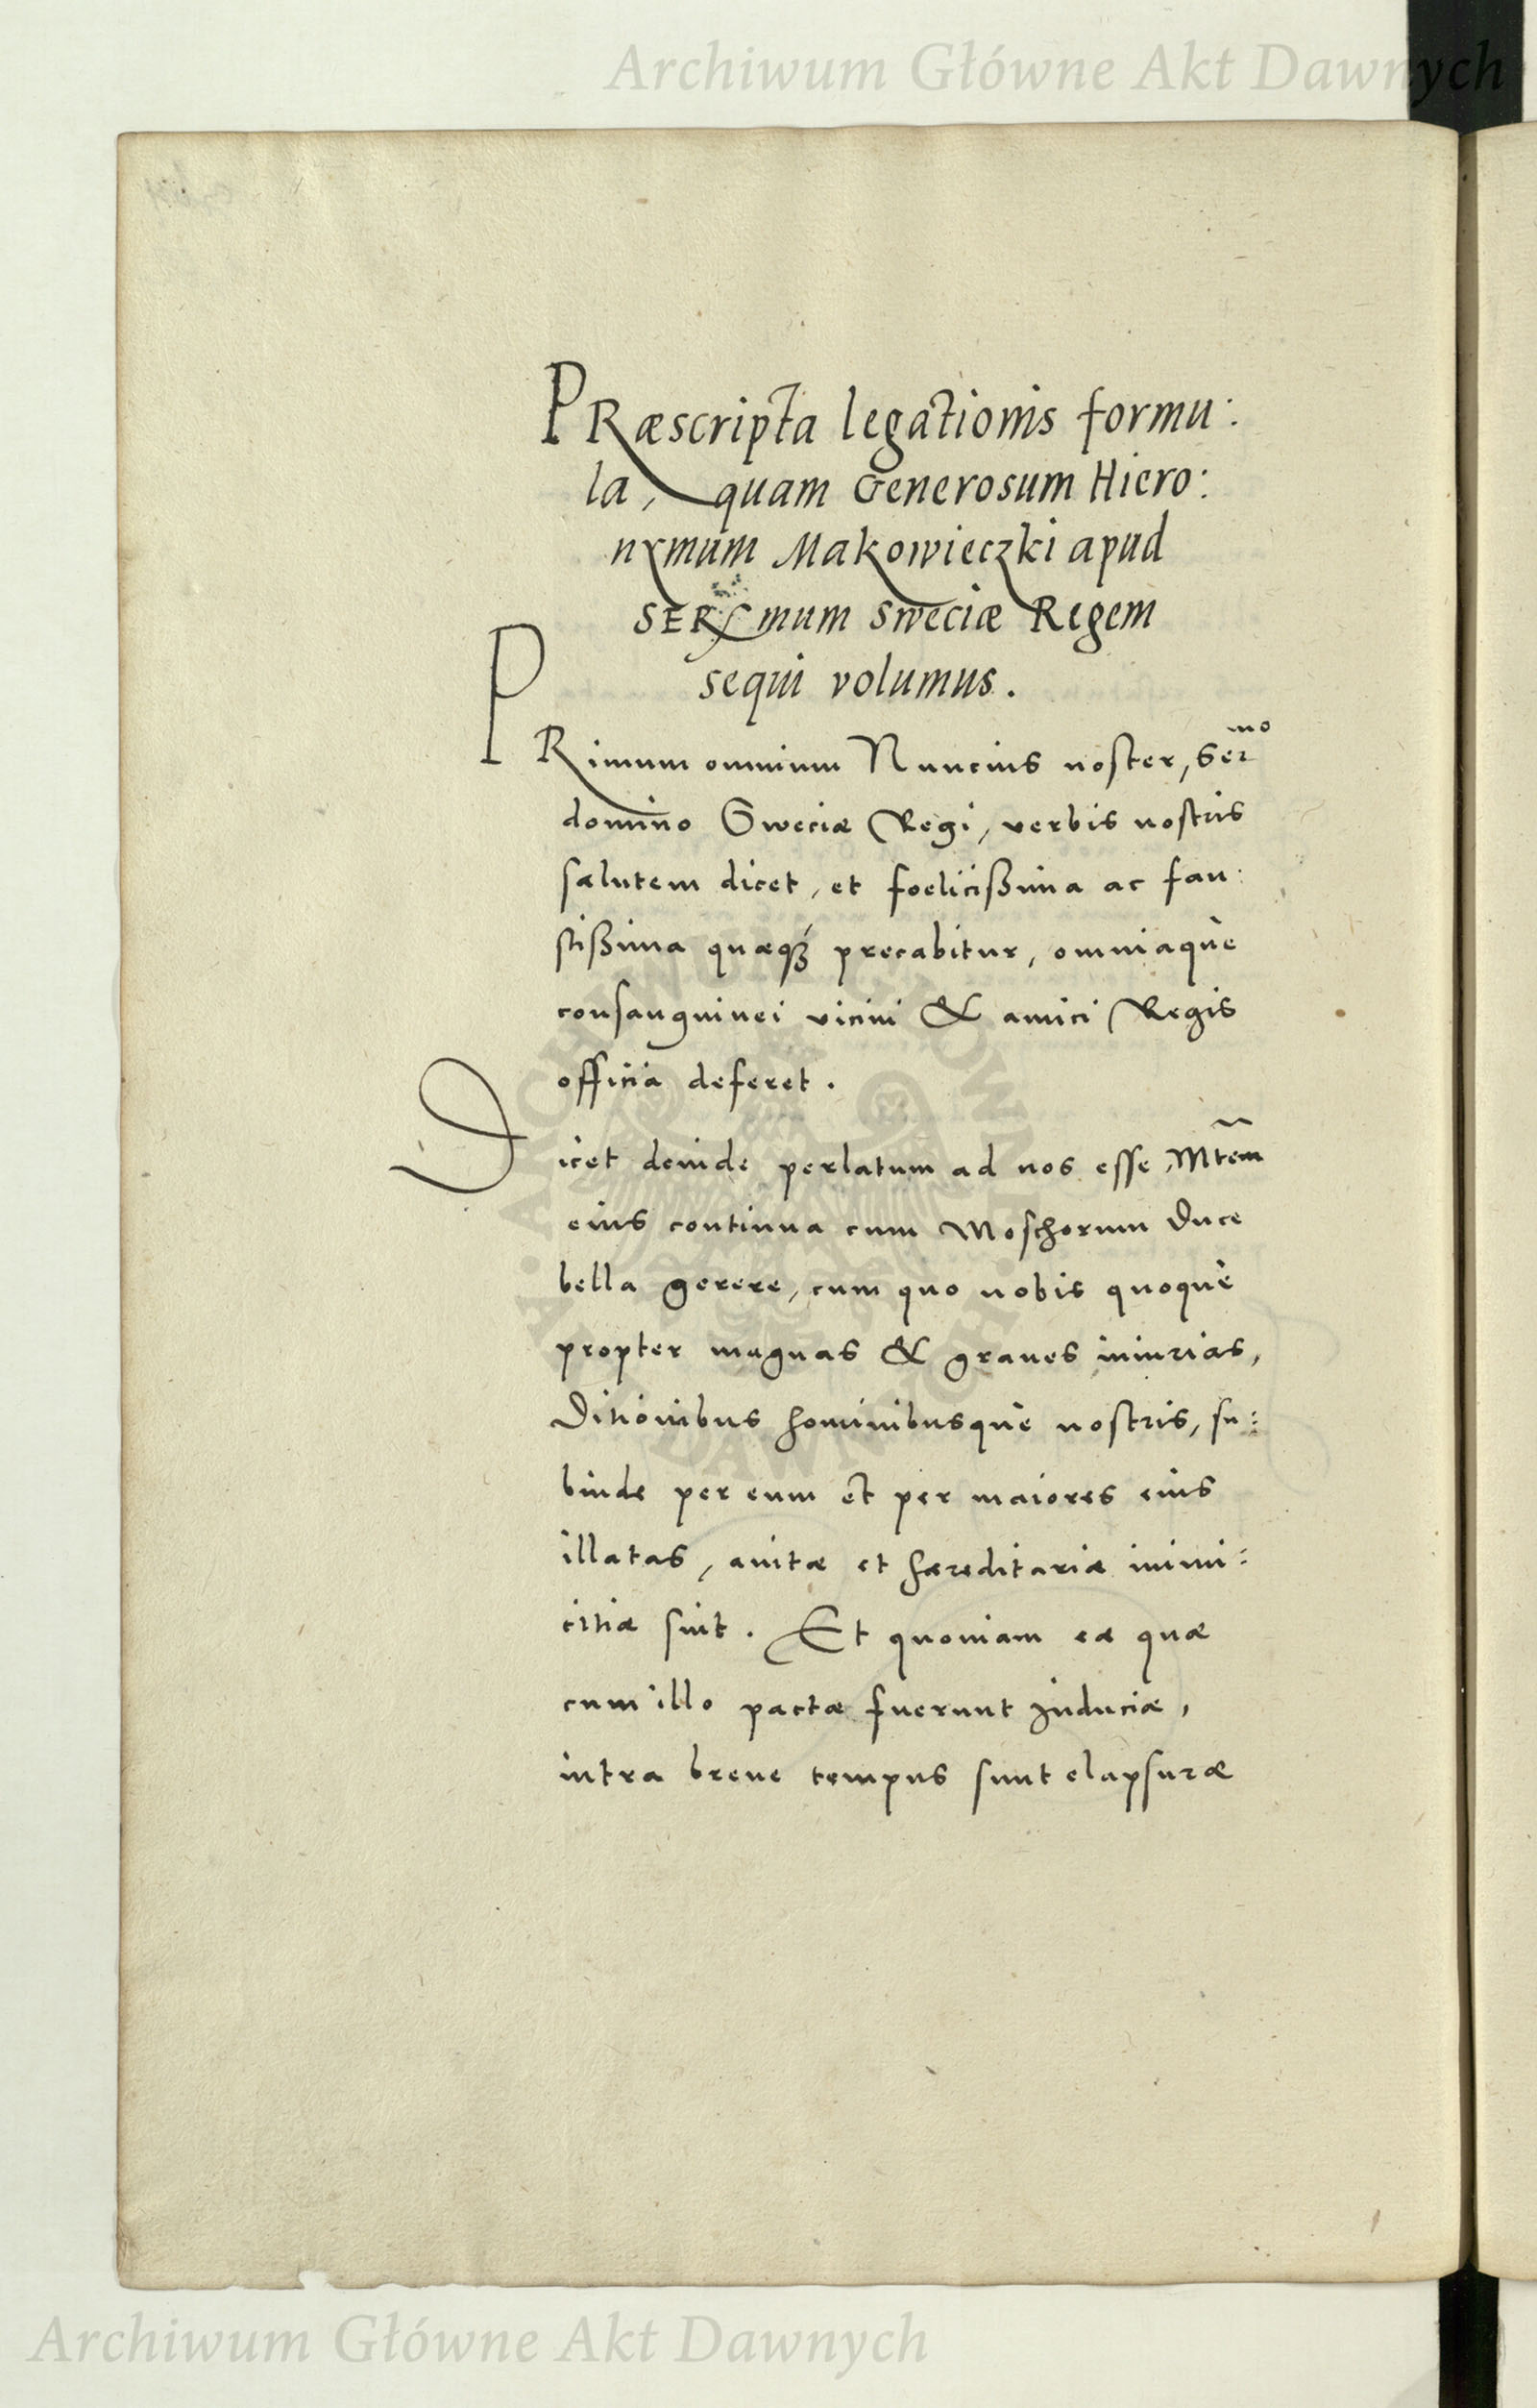 Archiwum Główne Akt Dawnych
PRæscripta legationis formu:
la, quam Generosum Hiero:
nymum Makowieczki apud
SERmum Sweciæ Regem
sequi volumus.
PRimum omnium Nuncius noster, Serᵐᵒ
domino Sweciæ Regi, verbis nostris
salutem dicet, et foelicißima ac fau:
stißima quæqꝫ precabitur, omniaquè
consanguinei vicini & amici Regis
officia deferet.
Dicet deinde perlatum ad nos esse Mtem̃
eius continua cum Moschorum Duce
bella gerere, cum quo nobis quoquè
propter magnas & graues iniurias,
Ditionibus hominibusquè nostris, su:
binde per eum et per maiores eius
illatas, auitæ et hæreditariæ inimi:
citiæ sint. Et quoniam eæ quæ
cum illo pactæ fuerunt Induciæ,
intra breue tempus sunt elapsuræ
Archiwum Główne Akt Dawnych